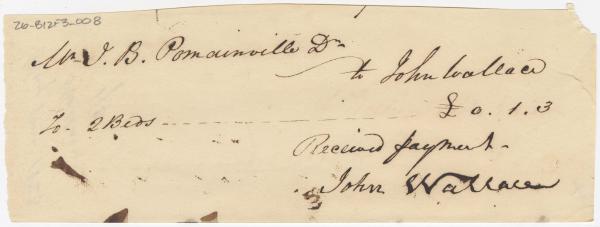 26-B12F3-008
Mr J. B. Pomainville Dr
to John Wallace
To 2 Beds £ 0. 1. 3
Received payment
John Wallace